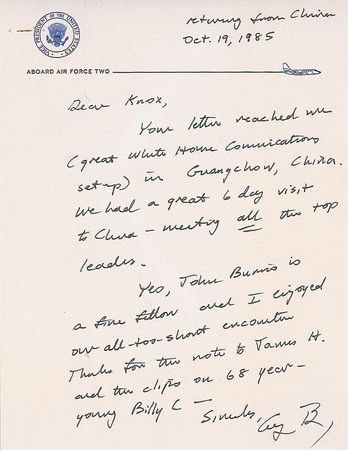 VICE PRESIDENT OF THE UNITED STATES
returning from China
Oct. 19, 1985
ABOARD AIR FORCE TWO
Dear Knox,
Your letter reached me
(great White House Comunications
set-up) in Guangchow, China.
We had a great 6 day visit
to China – meeting all the top
leaders.
Yes, John Burns is
a fine fellow and I enjoyed
our all-too-short encounter
Thanks for the note to James H.
and the clips on 68 year –
young Billy C – Sincerely,